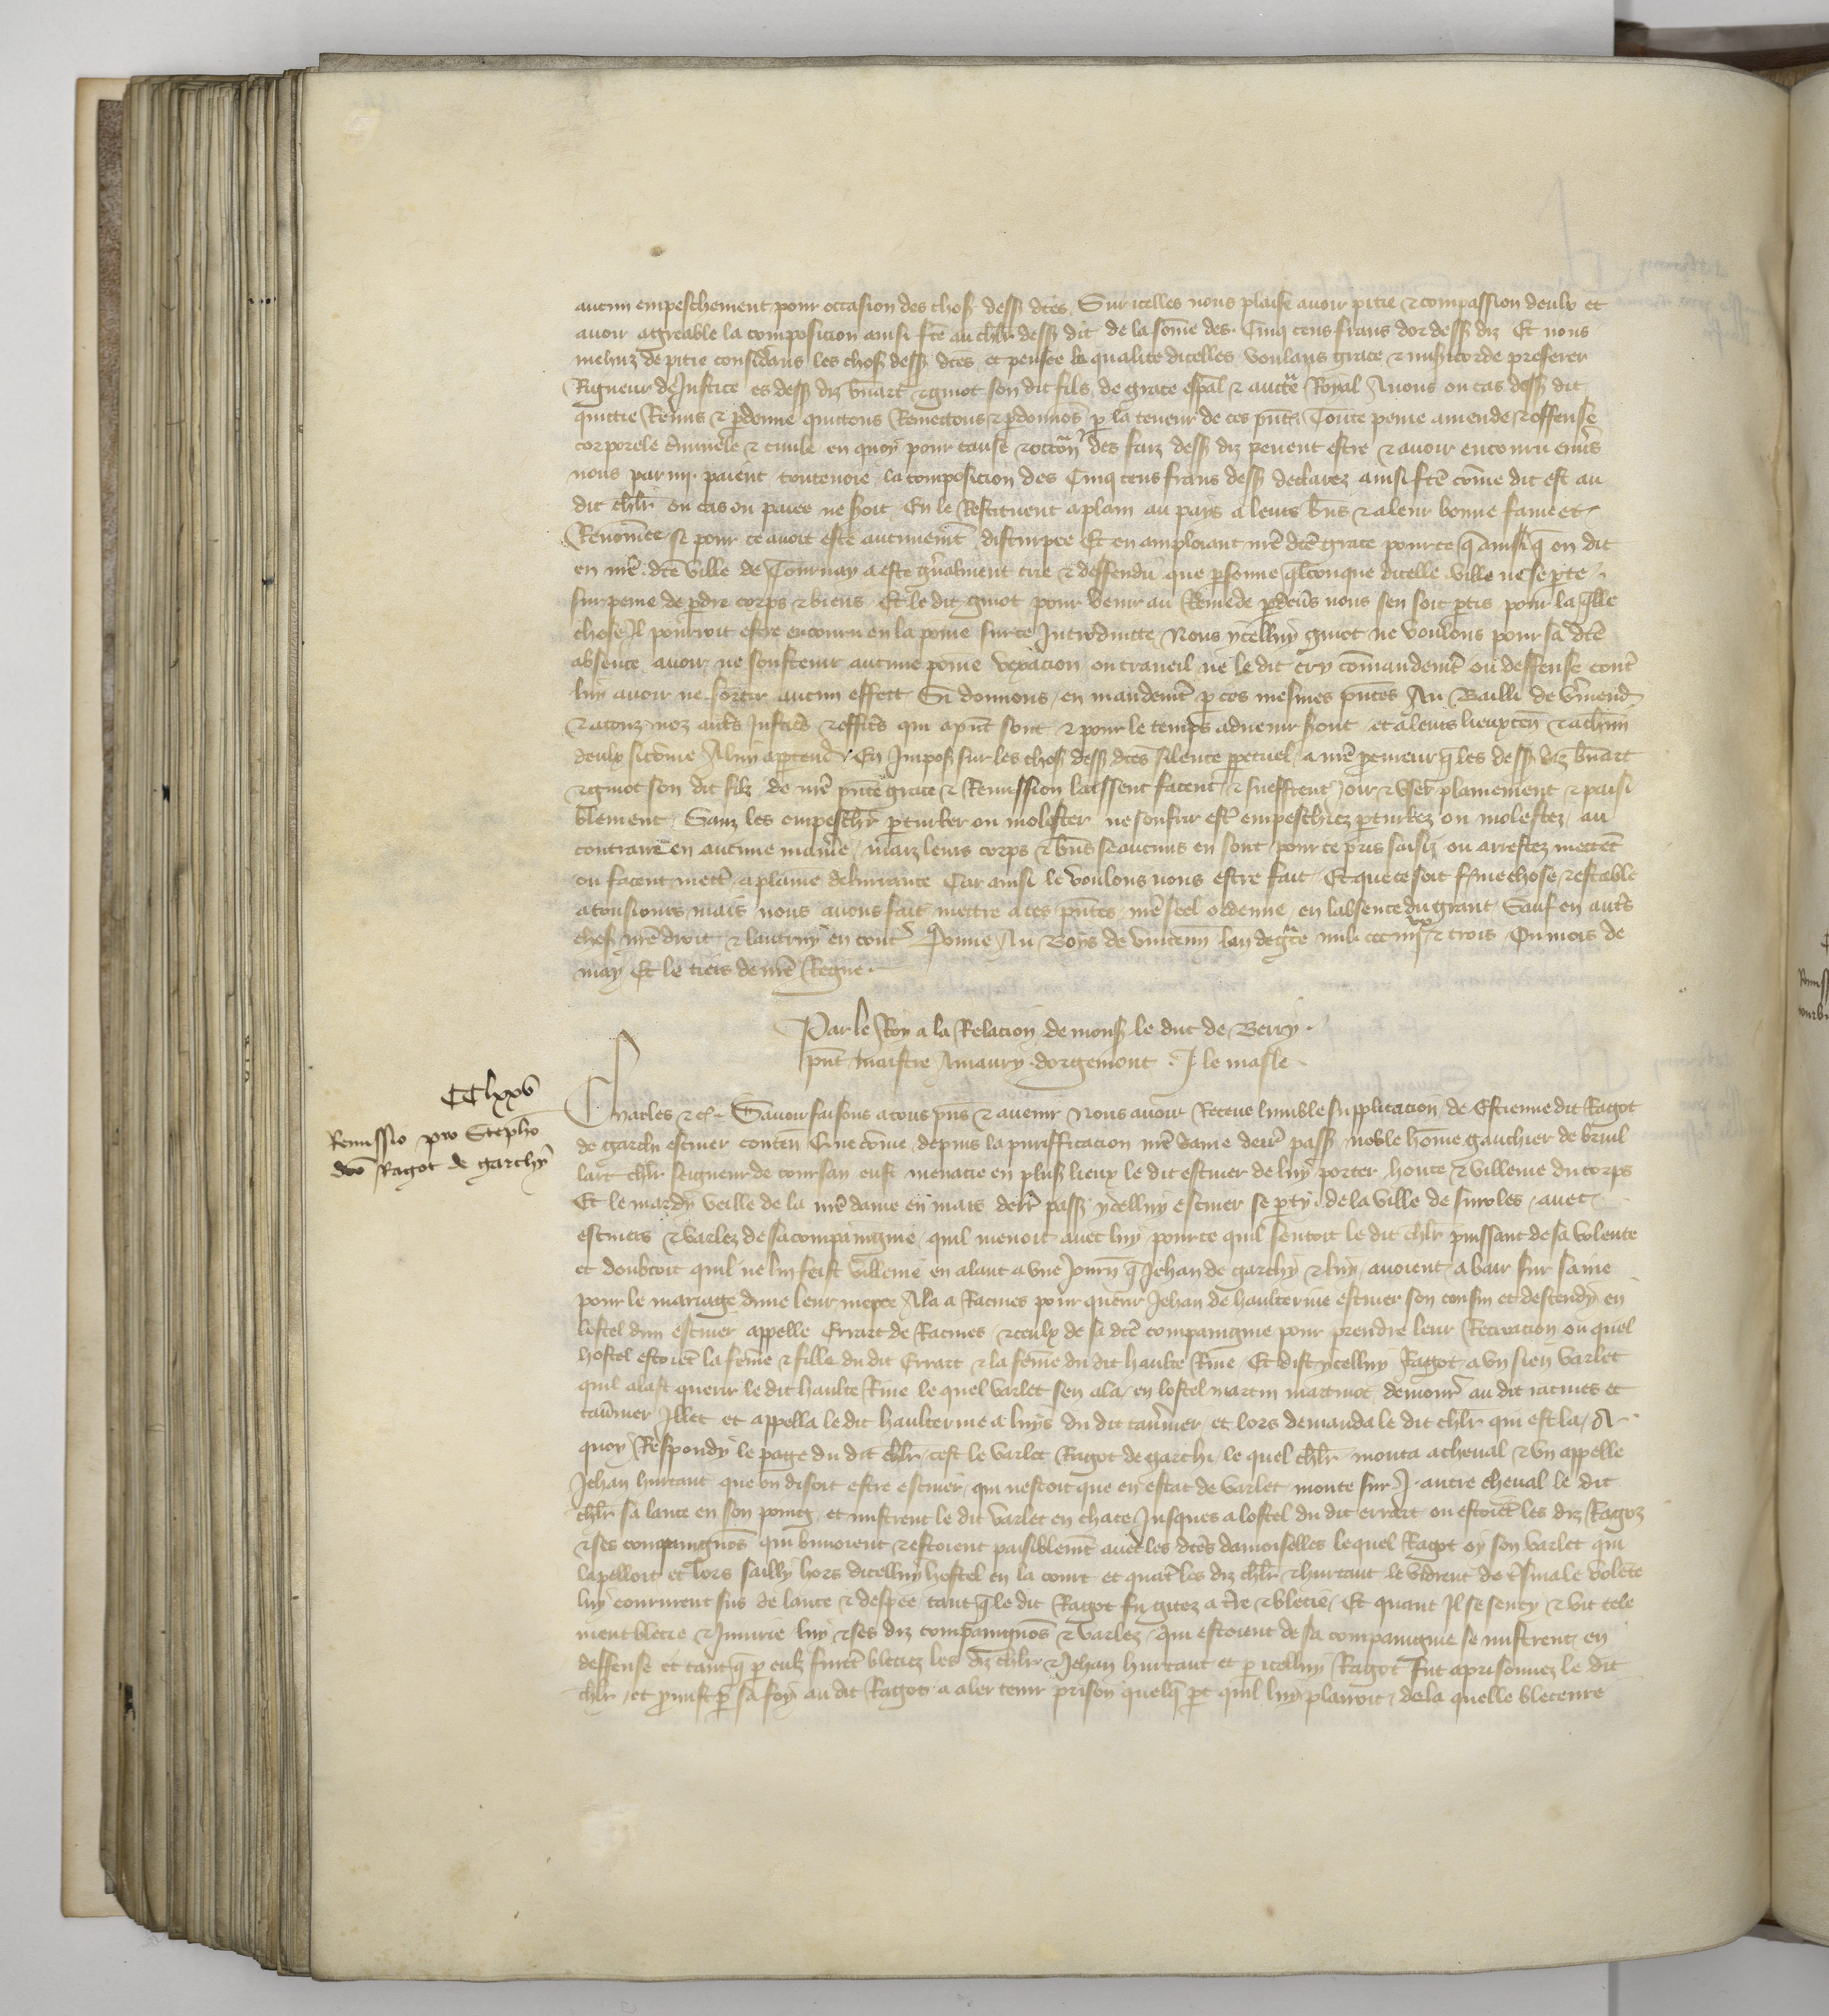 aucun empeschement pour occasion des chos dess dces Sur icelles nous plaise avoir pitie & compassion deulx et
avoir aggreable la composicion ainsi fce au chlr dess dit de la some des Cinq cens frans dor dess diz Et nous
mehuz de pitie considans les chos dess dces et pensee la qualite dicelles voulans grace & misicorde preferer
Rigueur de Justice es dess diz bnart & guiot son dit fils de grace espal & aucte Royal Avons ou cas dess dit
quictie Remis & pdonne quictons Remectons & pdonnos p la teneur de ces pnts Toute peine amende & offense
corporele criminele & civile en quoy pour cause & occon des faiz dess diz pevent estre & avoir encouru envs
nous parmi paient toutevoie la composicion des Cinq cens frans dess declarez ainsi fce come dit est au
dit chlr ou cas ou paiee ne soit En le Restituent a plain au pays a leurs bns & a leur bonne fame et
Renomee se pour ce avoit este aucunemt disturpee Et en ampliant nre dce grace pource q ainsi q on dit
en nre dce ville de Tournay a este gnalment crie & deffendu que psonne qlconque dicelle ville ne se pte
sur peine de pdre corps & biens Et le dit guiot pour venir au Remede pdevs nous sen soit ptis pour la qlle
chose Il pourroit estre encouru en la peine sur ce Introduitte Nous ycelluy guiot ne voulons pour sa dce
absence avoir ne soustenir aucune peine vexacion ou travail ne le dit cry comandemt ou deffense cont
luy avoir ne sortir aucun effect Si donnons en mandemt p ces mesmes pntes Au Bailli de vmend
& a touz noz auts Justics & officrs qui a pnt sont & pour le temps advenir sont et a leurs lieuxten & a chun
deulx sicome A luy aptend En Impos sur les chos dess dces silence ppetuel a nre pcureur q les dess diz bnart
& guiot son dit filz de nre pnte grace & Remission laissent facent & suefffrent joir & user plainement & paisi
blement Sanz les empeschr pturber ou molester ne soufrir estr empeschiez pturbez ou molestez au
contraire en aucune manie maiz leurs corps & bns se aucuns en sont pour ce pris saisiz ou arrestez mettet
ou facent mettr a plaine delivrance Car ainsi le voulons nous estre fait Et que ce soit fme chose & estable
a tousiours mais nous avons fait mettre a ces pntes nre seel ordenne en labsence du grant Sauf en auts
chos nre droit & lautruy en tout Donne Au Boys de vincenn lan de gce mil ccc iiijxx & trois Ou mois de
may Et le tiers de nre Regne
Par le Roy a la Relacion de mons le duc de Berry
pnt maistre Amaury dorgemont J le masle
CClxxv
Remissio pro Stepho
dco Ragot de garchy
Charles &c Savoir faisons a tous pns & avenir Nous avoir Receue lumble supplicacion de Estienne dit Ragot
de garchi escuier conten Que come depuis la puriffication nre dame derr pass noble home gauchier de bruil
lart chlr seigneur de coursan eust menacie en plus lieux le dit escuier de luy porter honte & villenie du corps
Et le mardy veille de la nre dame en mars derr pass ycelluy escuier se pty de la ville de suroles avec
escuiers & varlez de sa compaingnie quil menoit avec luy pource quil sentoit le dit chlr puissant de sa volente
et doubtoit quil ne luy feist villenie en alant a une journ q Jehan de garchy & luy avoient a bair sur saine
pour le mariage dune leur niepce Ala a Racines pour querir Jehan de haulterive escuier son cousin et descendy en
lostel dun escuier appelle Errart de Racines & ceulx de sa dce compaingnie pour prendre leur Recreacion ou quel
hostel estoiet la feme & fille du dit Errart & la feme du dit haulte Rive Et dist ycelluy Ragot a un sien varlet
quil alast querir le dit haulte Rive le quel varlet sen ala en lostel martin martinot demour au dit racines et
tavnier Illec et appella le dit haulterive a luys du dit tavnier et lors demanda le dit chlr qui est la A
quoy Respondy le page du dit chlr cest le varlet Ragot de garchi le quel chlr monta a cheval & un appelle
Jehan hurtaut que on disoit estre escuier qui nestoit que en estat de varlet monte sur j autre cheval le dit
chlr sa lance en son poing et mistrent le dit varlet en chace Jusques a lostel du dit errart ou estoiet les diz Ragoz
& ses compaingnos qui buvoient & estoient paisiblemt avec les dces damoiselles lequel Ragot oy son varlet qui
lapelloit et lors sailly hors dicelluy hostel en la court et quat les diz chlr & hurtaut le virent de ts male volete
luy coururent sus de lance & despee tant q le dit Ragot fu gitez a tre & blecie Et quant Il se senty & vit tele
ment blecie & Iniurie luy & ses diz compaingnos & varlez qui estoient de sa compaingnie se mistrent en
deffense et tant q p eulz furet bleciez les diz chlr & Jehan hurtaut et p icelluy Ragot fut aprisonnez le dit
chlr et pmist p sa foy au dit Ragot a aler tenir prison quelq pt quil luy plairoit de la quelle bleceure